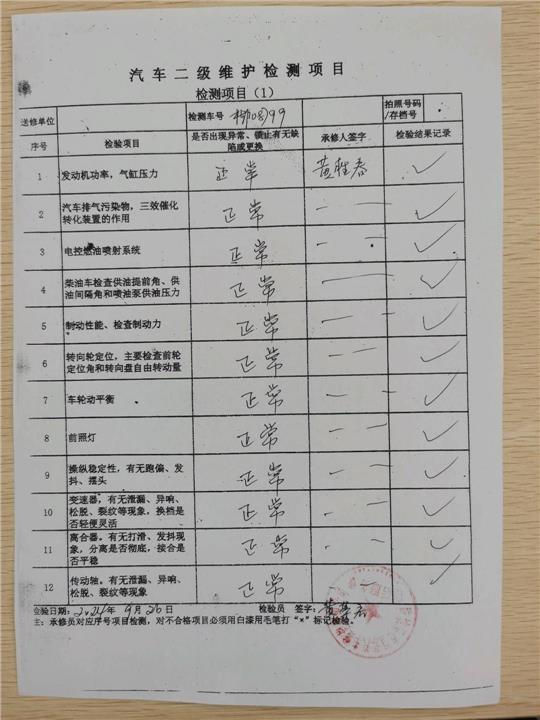 汽车二级维护检测项目
检测项目（1）
送修单位 检测车号 拍照号码/存档号
序号 检验项目 是否出现异常、锁止有无缺陷或更换 承修人签字 检验结果记录
1 发动机功率，气缸压力 正常 ✓
2 汽车排气污染物，三效催化转化装置的作用 正常 — — ✓
3 电控燃油喷射系统 正常 — — ✓
4 柴油车检查供油提前角、供油间隔角和喷油泵供油压力 正常 — — ✓
5 制动性能、检查制动力 正常 — — ✓
6 转向轮定位，主要检查前轮定位角和转向盘自由转动量 正常 — — ✓
7 车轮动平衡 正常 — — ✓
8 前照灯 正常 — — ✓
9 操纵稳定性，有无跑偏、发抖、摆头 正常 — — ✓
10 变速器，有无泄漏、异响、松脱、裂纹等现象，换档是否轻便灵活 正常 — — ✓
11 离合器。有无打滑、发抖现象，分离是否彻底，接合是否平稳 正常 — — ✓
12 传动轴。有无泄漏、异响、松脱、裂纹等现象 正常 — ✓
检验日期：2021年 9月26日 检验员 签字：
主：承修员对应序号项目检测，对不合格项目必须用白漆用毛笔打“×”标记检验。